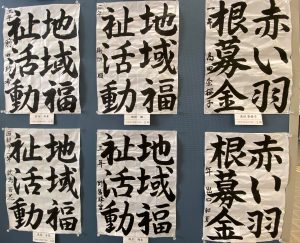 地域福
祉活動
地域福
祉活動
赤い羽
根募金
地域福
祉活動
地域福
祉活動
赤い羽
根募金